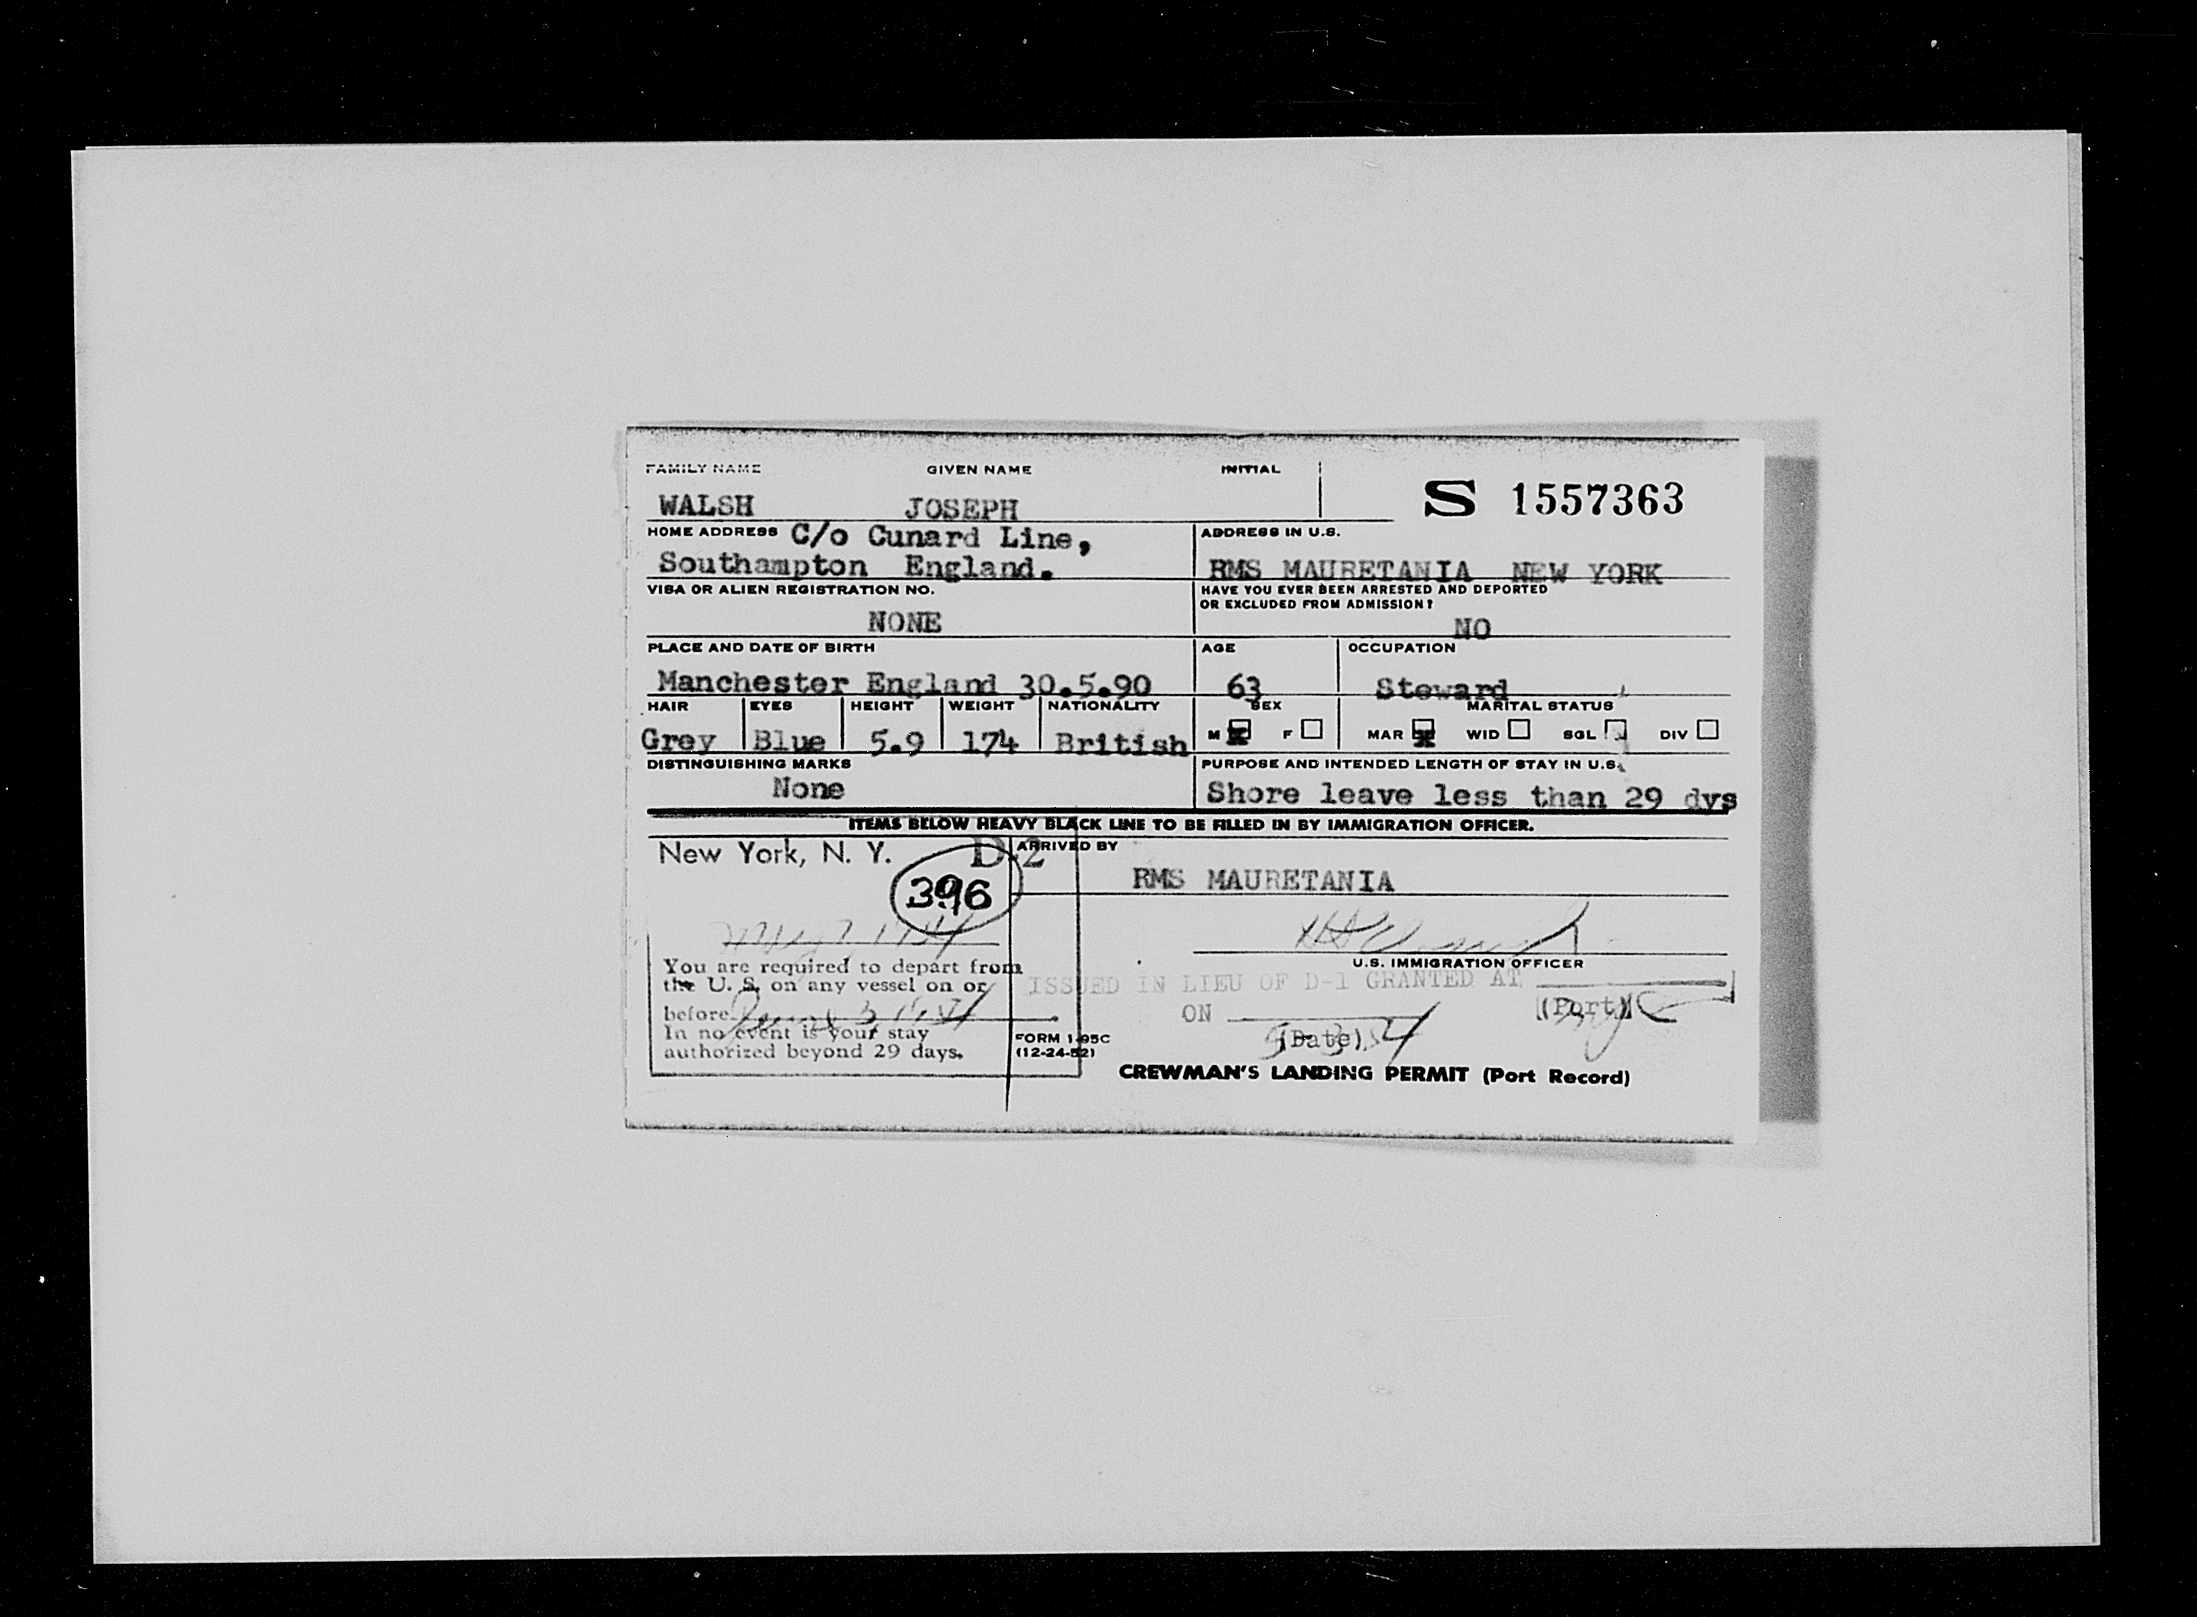 FAMILY NAME GIVEN NAME INITIAL
WALSH JOSEPH S 1557363
HOME ADDRESS C/o Cunard Line, ADDRESS IN U.S.
Southampton England. RMS MAURETANIA NEW YORK
VISA OR ALIEN REGISTRATION NO. HAVE YOU EVER BEEN ARRESTED AND DEPORTED
OR EXCLUDED FROM ADMISSION?
NONE NO
PLACE AND DATE OF BIRTH AGE OCCUPATION
Manchester England 30.5.90 63 Steward
HAIR EYES HEIGHT WEIGHT NATIONALITY SEX MARITAL STATUS
Grey Blue 5.9 174 British M F MAR WID SGL DIV
DISTINGUISHING MARKS PURPOSE AND INTENDED LENGTH OF STAY IN U.S.
None Shore leave less than 29 dys
ITEMS BELOW HEAVY BLACK LINE TO BE FILLED IN BY IMMIGRATION OFFICER.
New York, N. Y. D.2 ARRIVED BY
396 RMS MAURETANIA
U.S. IMMIGRATION OFFICER
You are required to depart from
the U. S. on any vessel on or
before
In no event is your stay
authorized beyond 29 days.
ISSUED IN LIEU OF D-1 GRANTED AT
(Port)
ON
(Date)
FORM I-95C
(12-24-52)
CREWMAN'S LANDING PERMIT (Port Record)